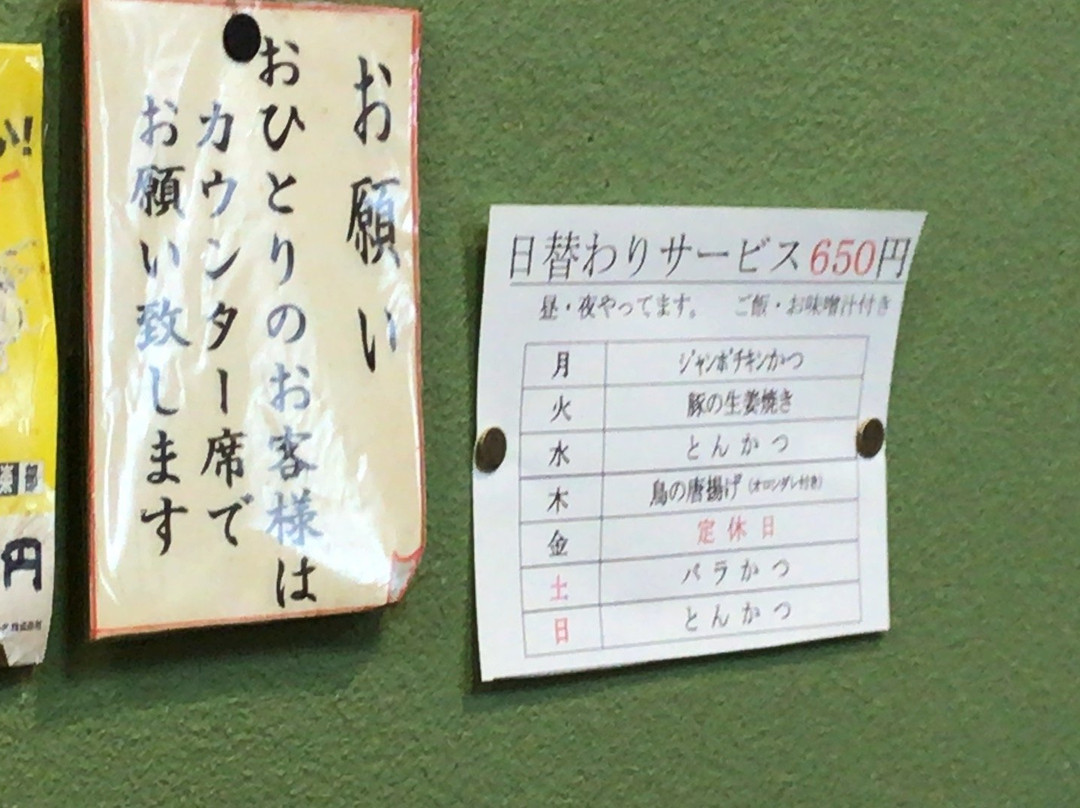 お願い
おひとりのお客様は
カウンター席で
お願い致します
日替わりサービス650円
昼・夜やってます。 ご飯・お味噌汁付き
月 ジャンボチキンかつ
火 豚の生姜焼き
水 とんかつ
木 鳥の唐揚げ(オロシダレ付き)
金 定休日
土 バラかつ
日 とんかつ
い!
部
円
株式会社